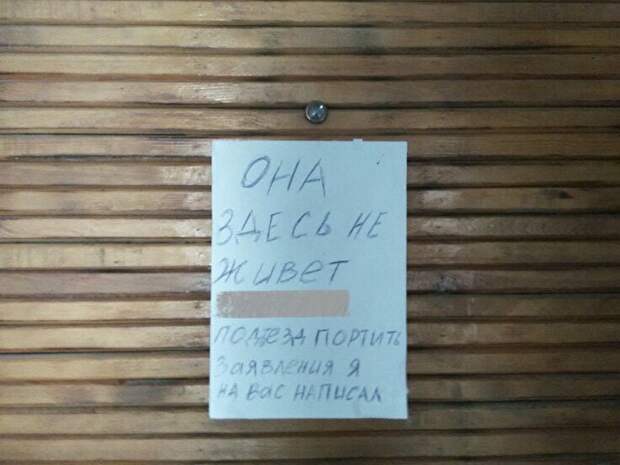 ОНА
ЗДЕСЬ НЕ
ЖИВЕТ
ПОДЪЕЗД ПОРТИТЬ
ЗАЯВЛЕНИЯ Я
НА ВАС НАПИСАЛ